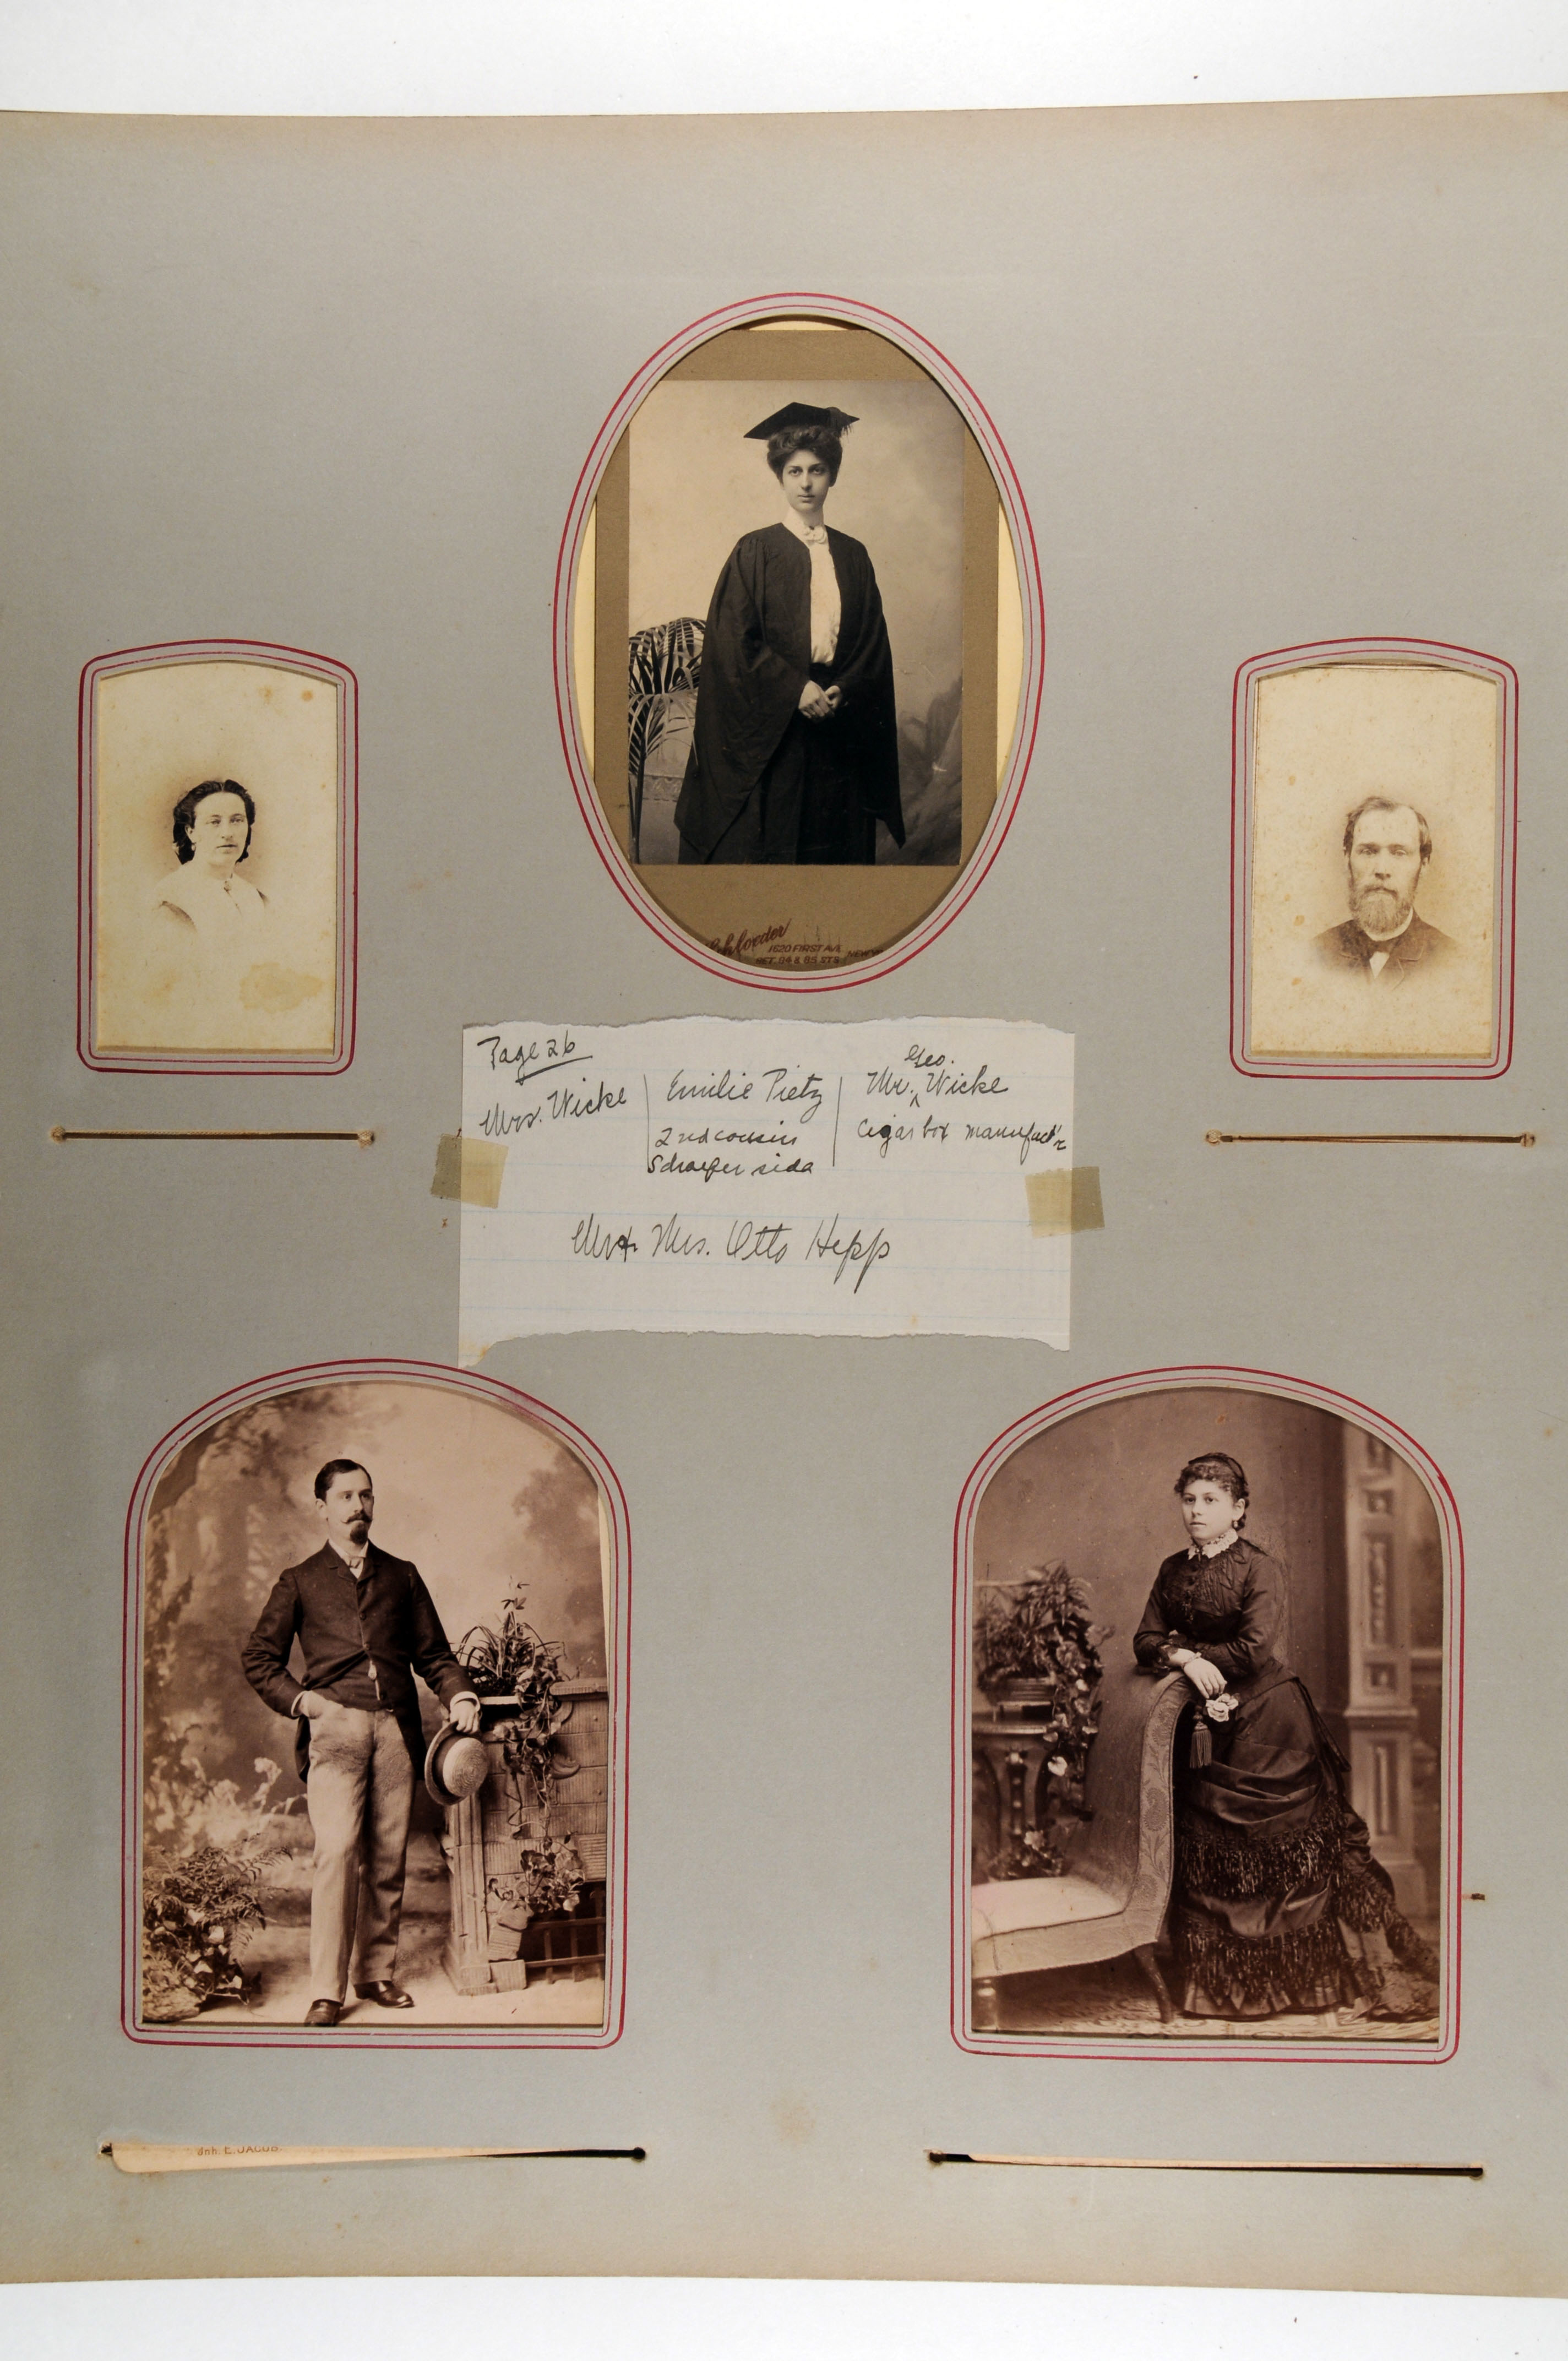 Schloeder
1620 FIRST AVE.
BET. 84 & 85 STS. NEW Y
Page 26
Mrs. Wicke
Emilie Pietz
2nd cousin
Schaefer side
Geo.
Mr. ^ Wicke
Cigar box manufact'r
Mr + Mrs. Otto Hepp
Inh. E. JACOB.